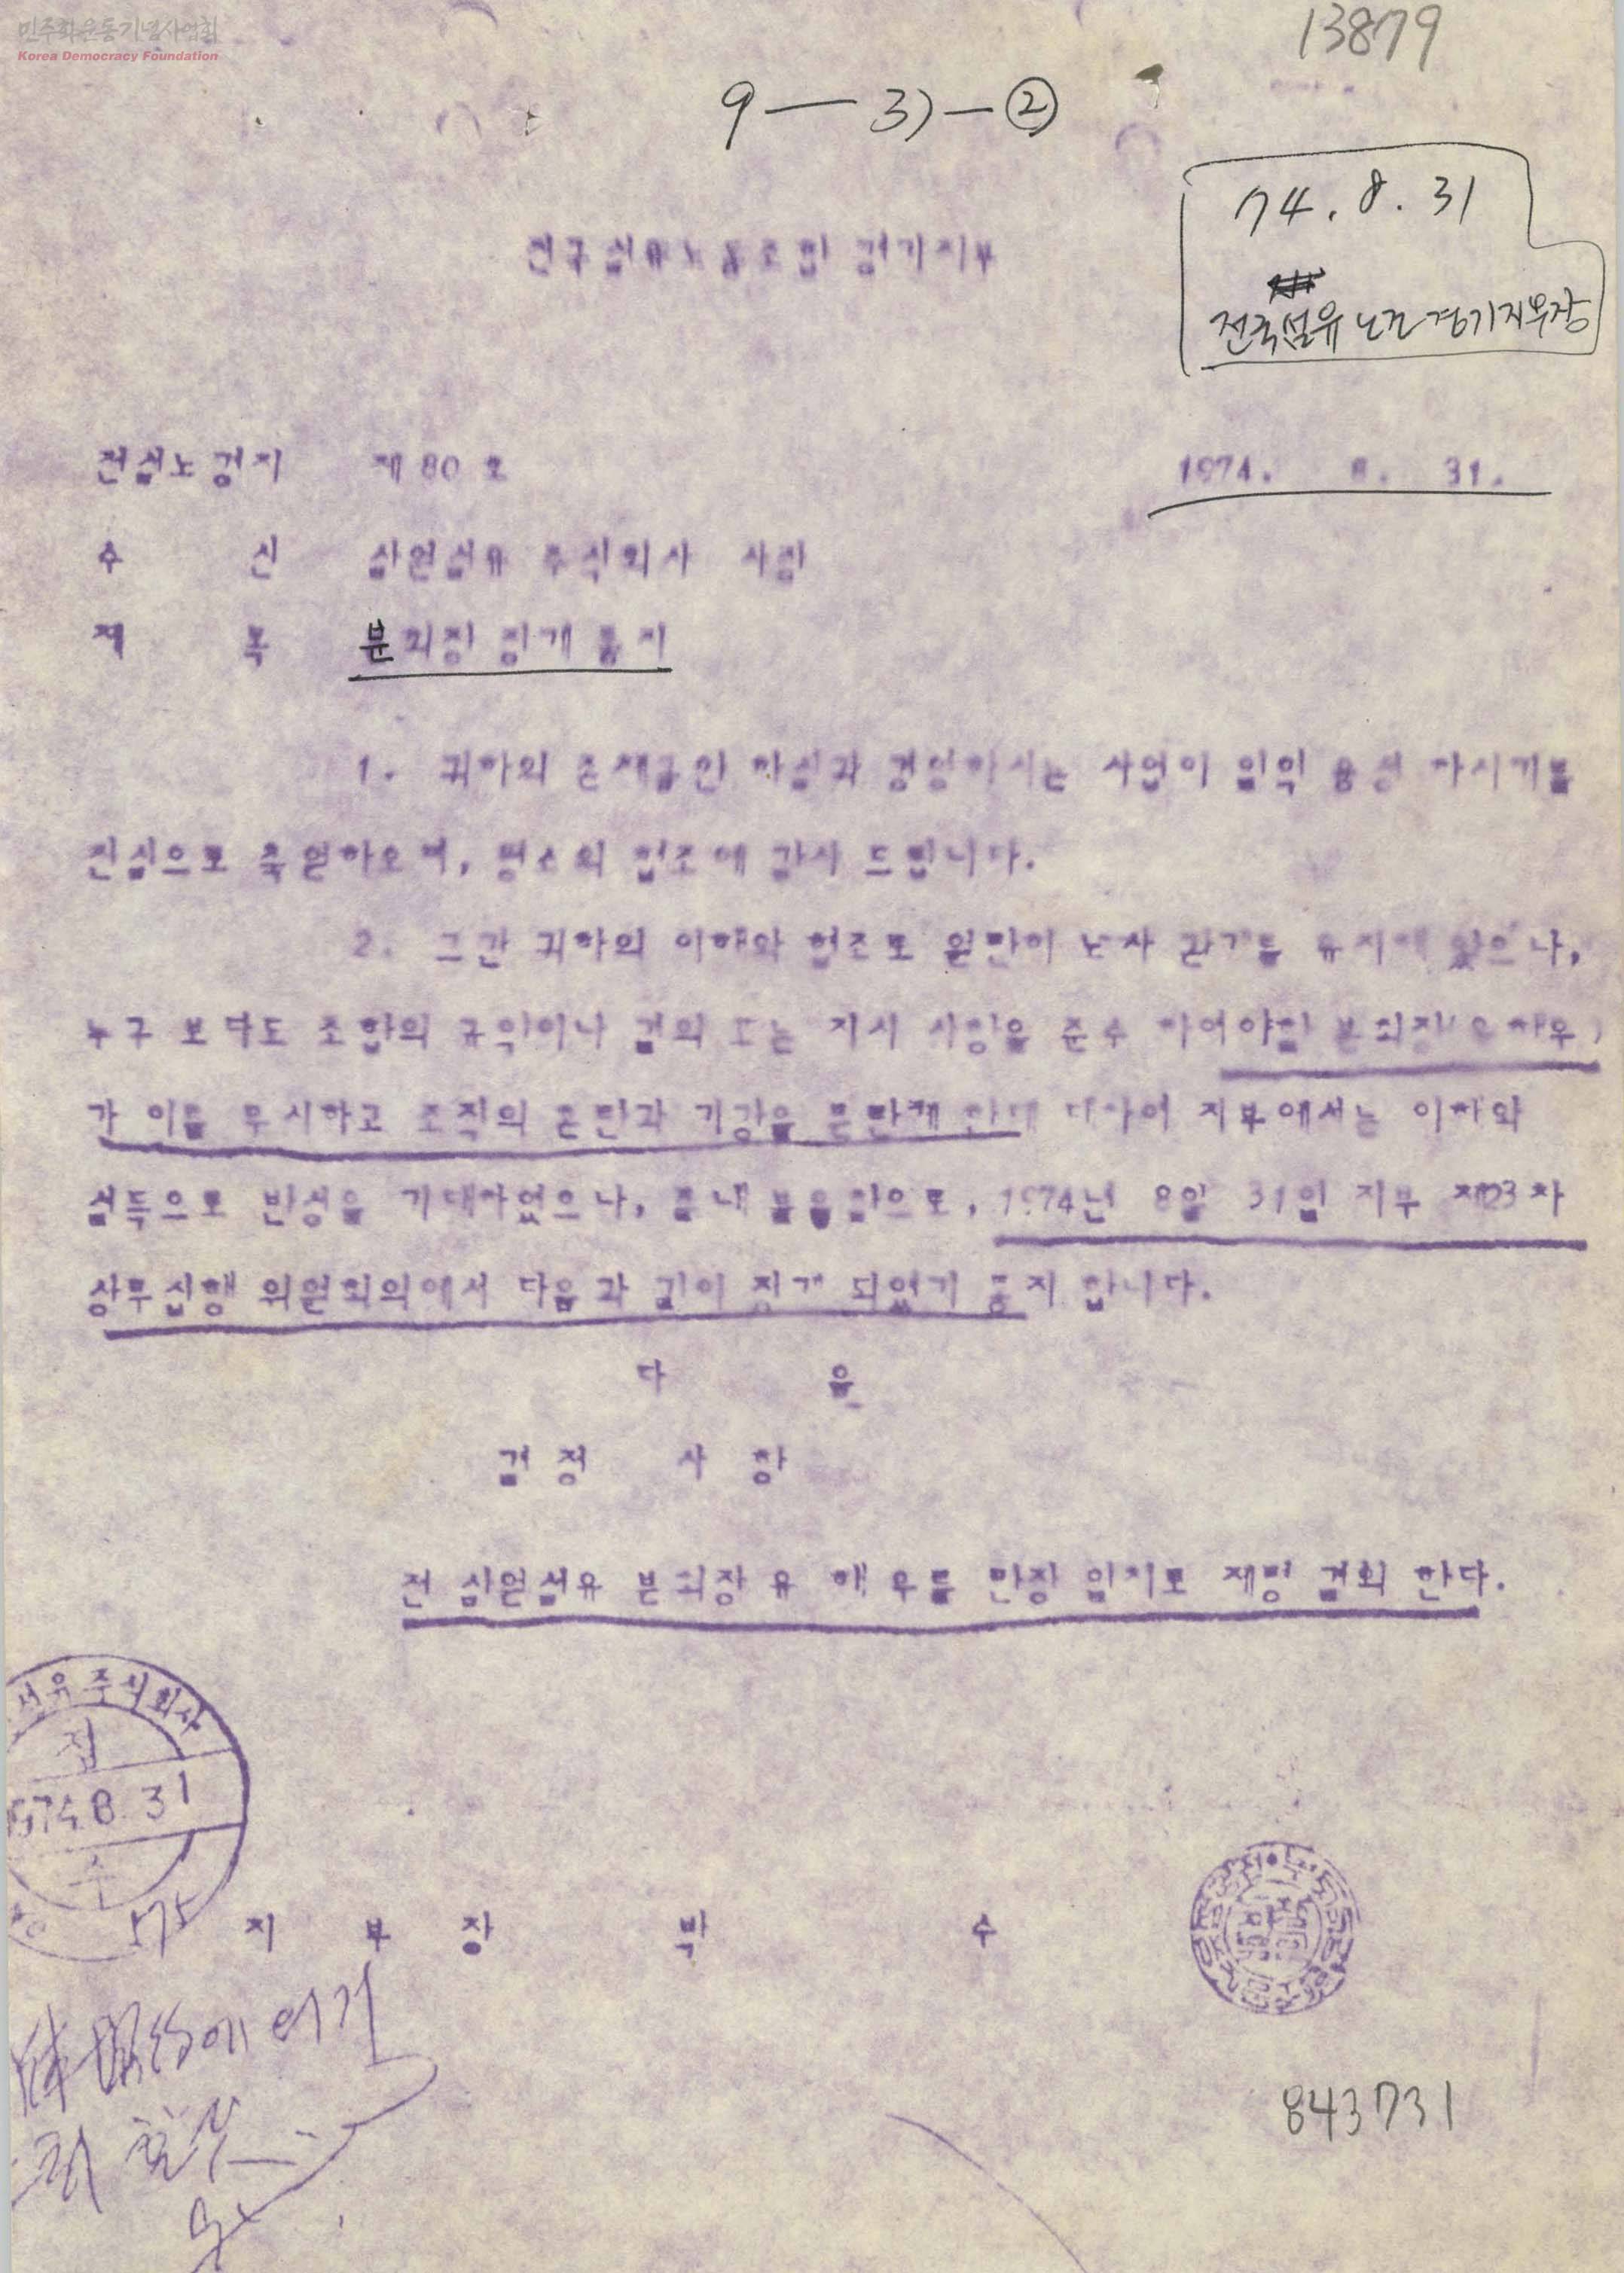 민주화운동기념사업회
Korea Democracy Foundation
13879
9 — 3) — ②
74. 8. 31
전국섬유노조 경기지부장
전국섬유노동조합 경기지부
전섬노경지 제80호 1974. 8. 31.
수 신 삼원섬유 주식회사 사장
제 목 분회장 징계 통지
1. 귀하의 존체금안 하심과 경영하시는 사업이 일익 융성 하시기를
진심으로 축원하오며, 평소의 협조에 감사 드립니다.
2. 그간 귀하의 이해와 협조로 원만히 노사 관계를 유지해 왔으나,
누구 보다도 조합의 규약이나 결의 또는 지시 사항을 준수 하여야할 분회장(유해우)
가 이를 무시하고 조직의 혼란과 기강을 문란케 한데 대하여 지부에서는 이해와
설득으로 반성을 기대하였으나, 끝내 불응함으로, 1974년 8월 31일 지부 제23차
상무집행 위원회의에서 다음과 같이 징계 되었기 통지 합니다.
다 음
결정 사항
전 삼원섬유 분회장 유 해 우를 만장 일치로 제명 결의 한다.
섬유주식회사
접
1974.8.31
수
575
지 부 장 박 수
에 여기
843731